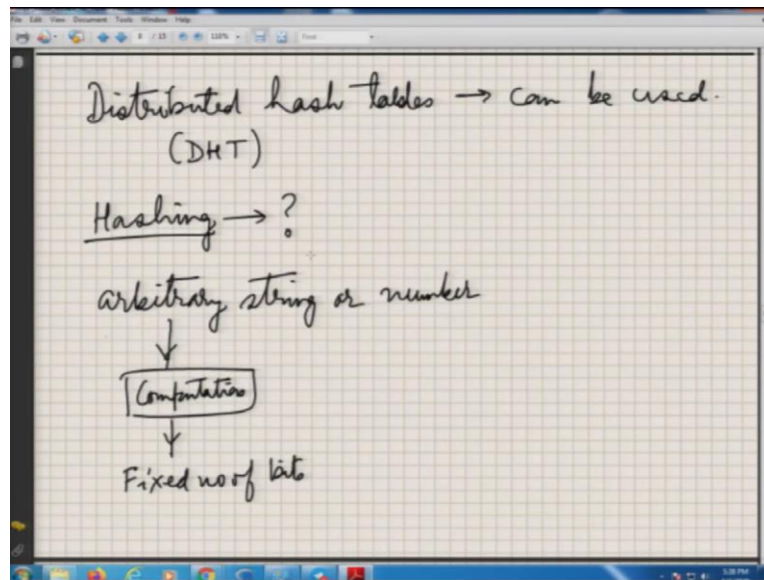 File Edit View Document Tools Window Help
8 / 15 110% Find
Distributed hash tables → can be used.
(DHT)
Hashing → ?
arbitrary string or number
Computation
Fixed no of bits
5:28 PM